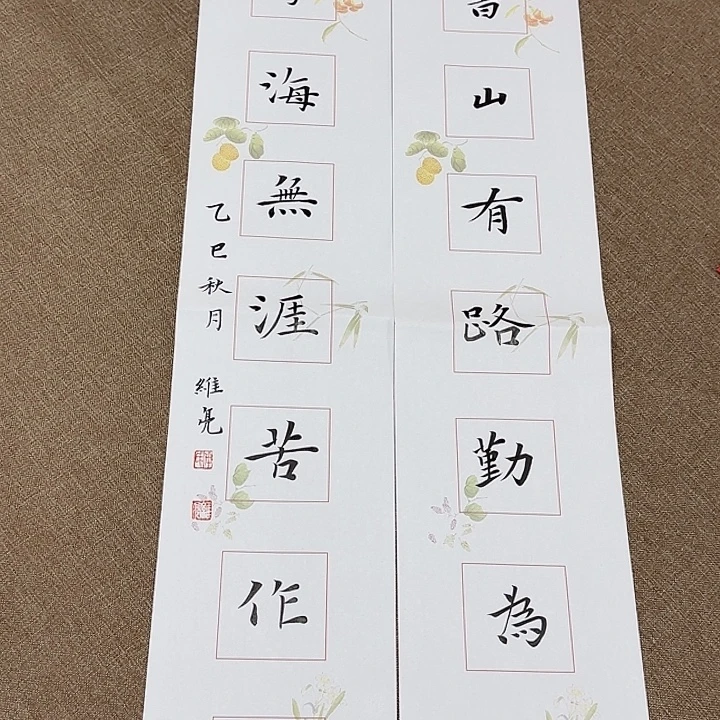 山有路勤為
海無涯苦作
乙巳秋月
維亮